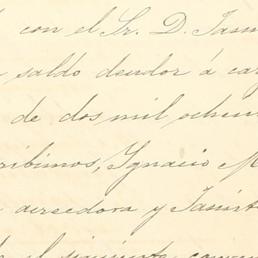 con el Sr. D. Jam
saldo deudor á car
de dos mil ochen
ribimos, Ignacio M
acreedora y Jacint
el siguiente conven